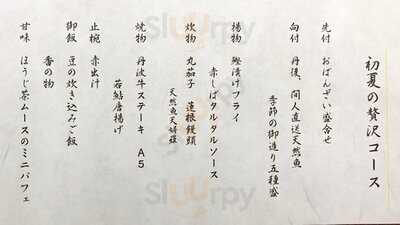 初夏の贅沢コース
先付 おばんざい盛合せ
向付 丹後、間人直送天然魚
季節の御造り五種盛
揚物 鰹漬けフライ
赤しばタルタルソース
炊物 丸茄子 蓮根饅頭
天然魚天婦羅
焼物 丹波牛ステーキ A5
若鮎唐揚げ
止椀 赤出汁
御飯 豆の炊き込みご飯
香の物
甘味 ほうじ茶ムースのミニパフェ
Sluurpy
Sluurpy